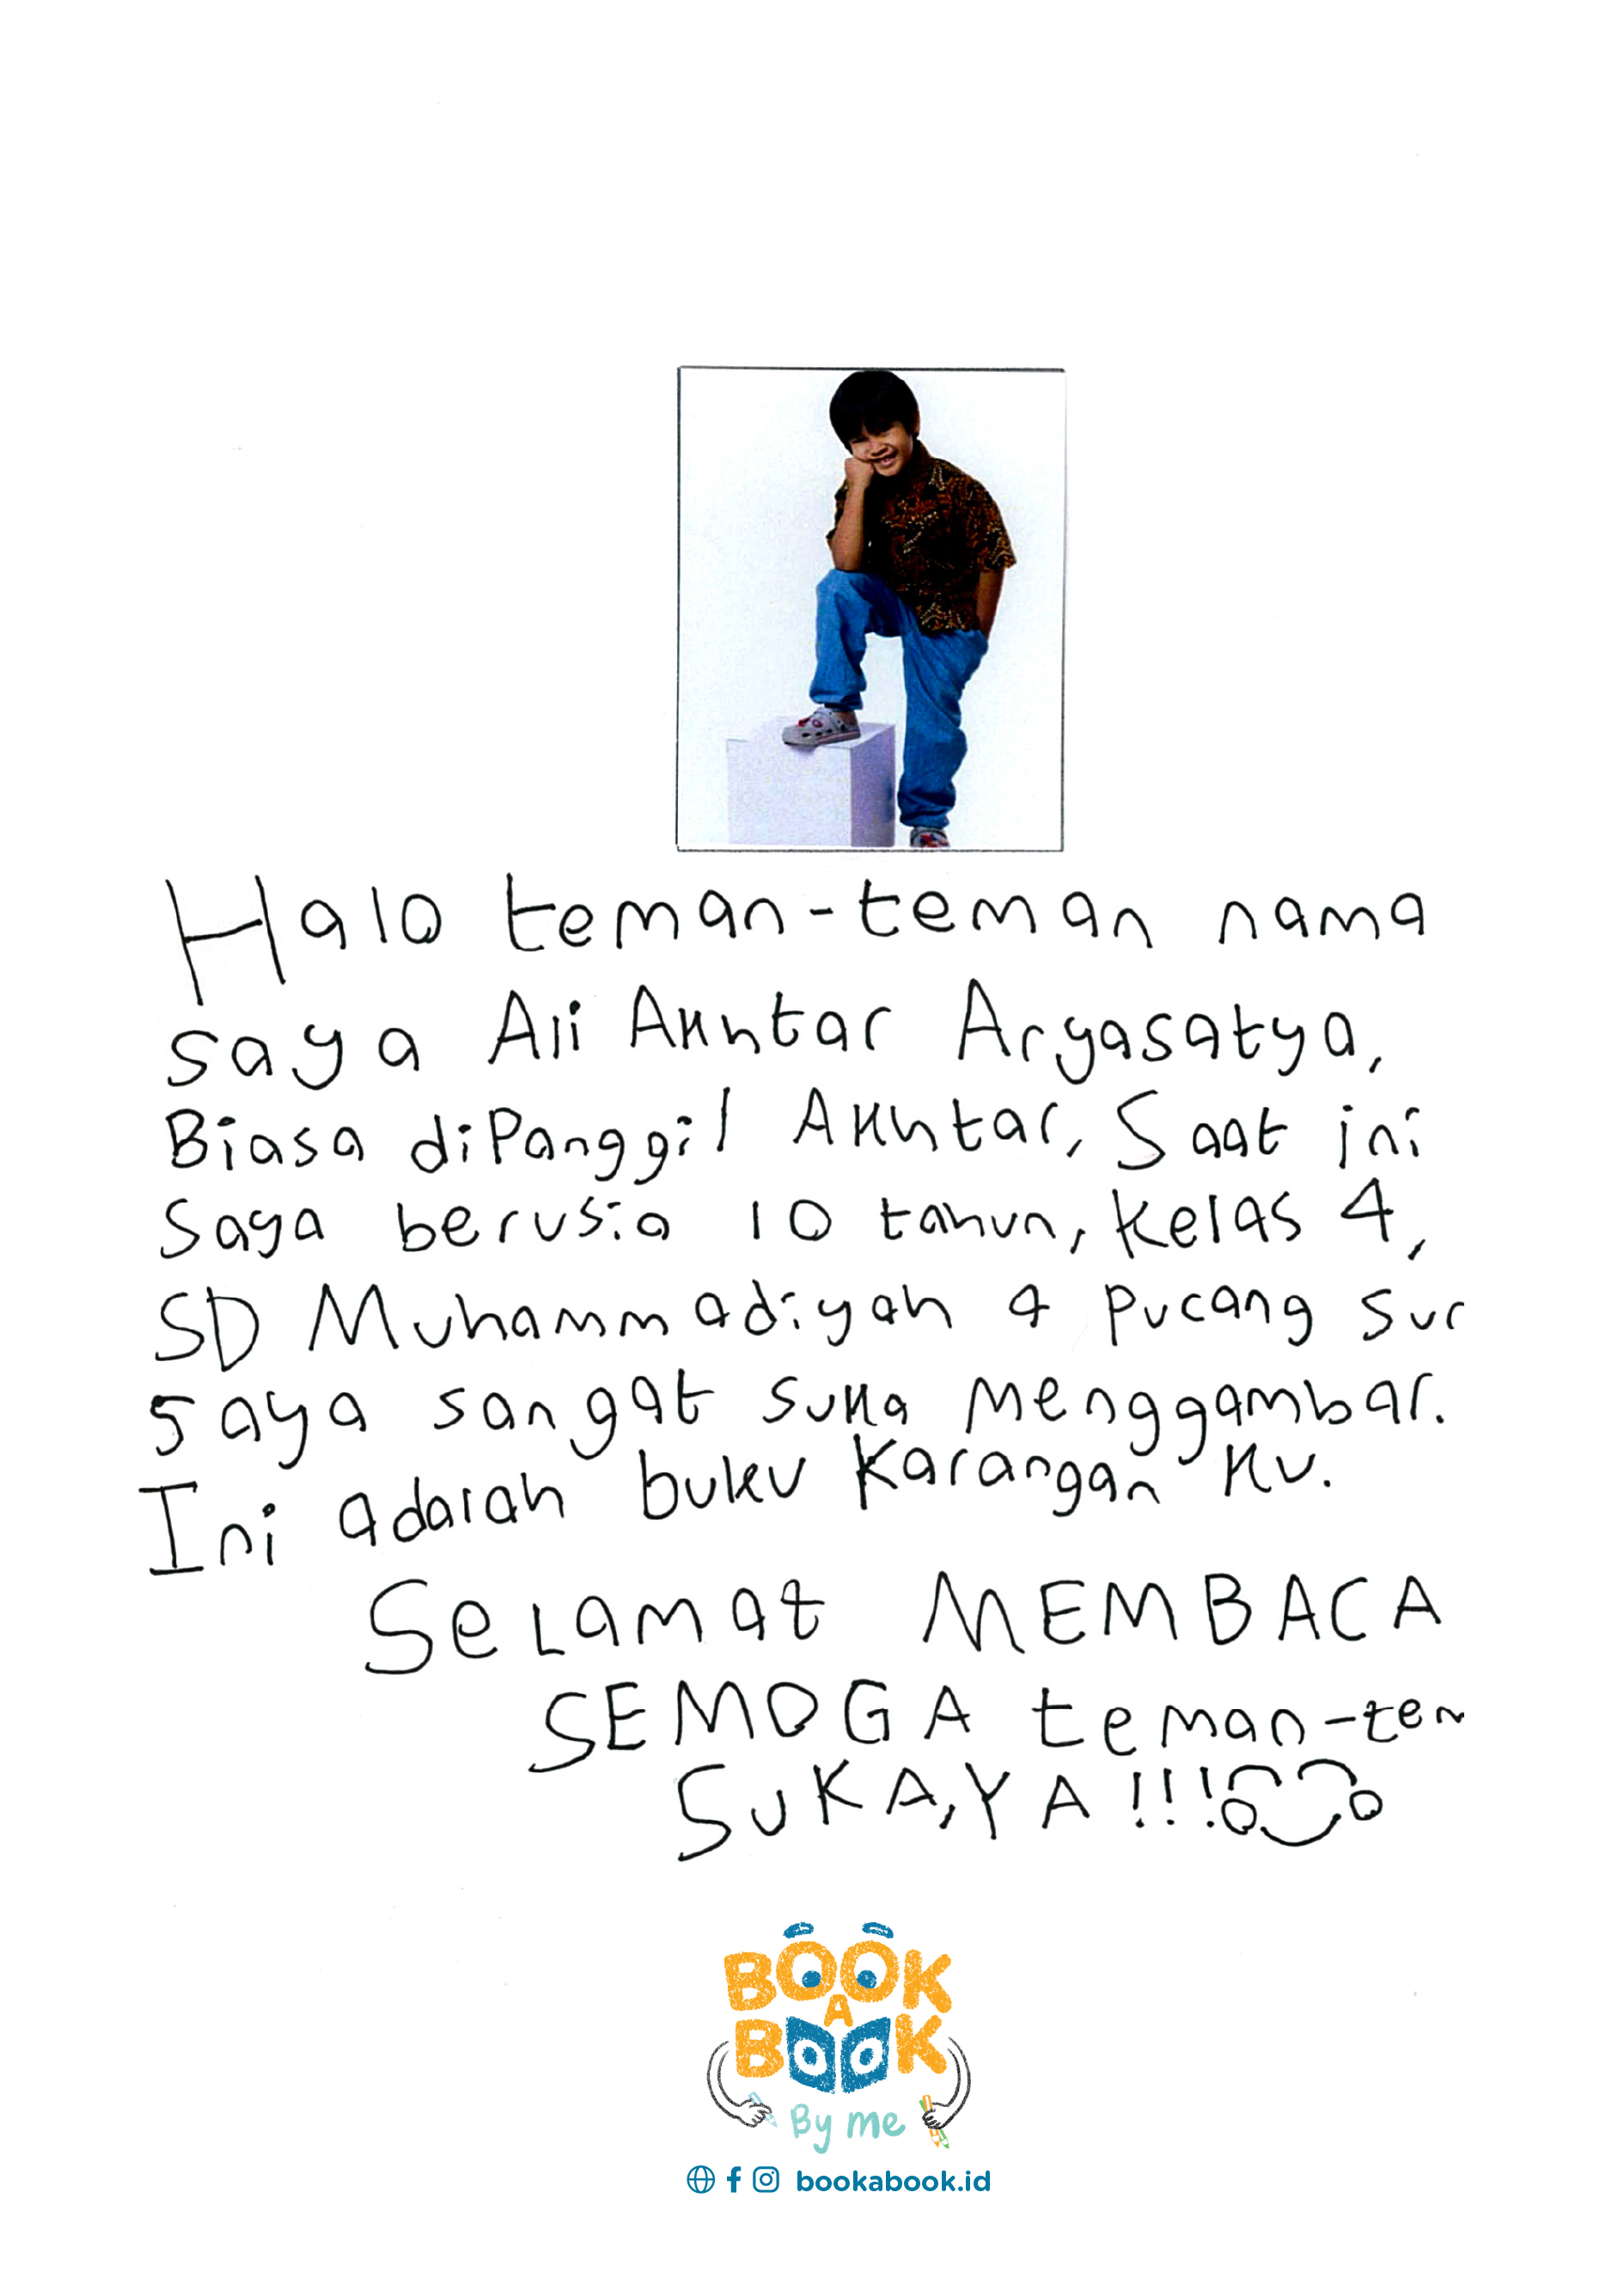 Halo teman-teman nama
saya Ali Akhtar Aryasatya,
Biasa diPanggil Akhtar, Saat ini
Saya berusia 10 tahun, Kelas 4,
SD Muhammadiyah 4 Pucang Sur
Saya sangat suka Menggambar.
Ini adalah buku Karangan Ku.
SeLamat MEMBACA
SEMOGA teman-tem
SUKA,YA!!!
BOOK
A
BOOK
By me
bookabook.id